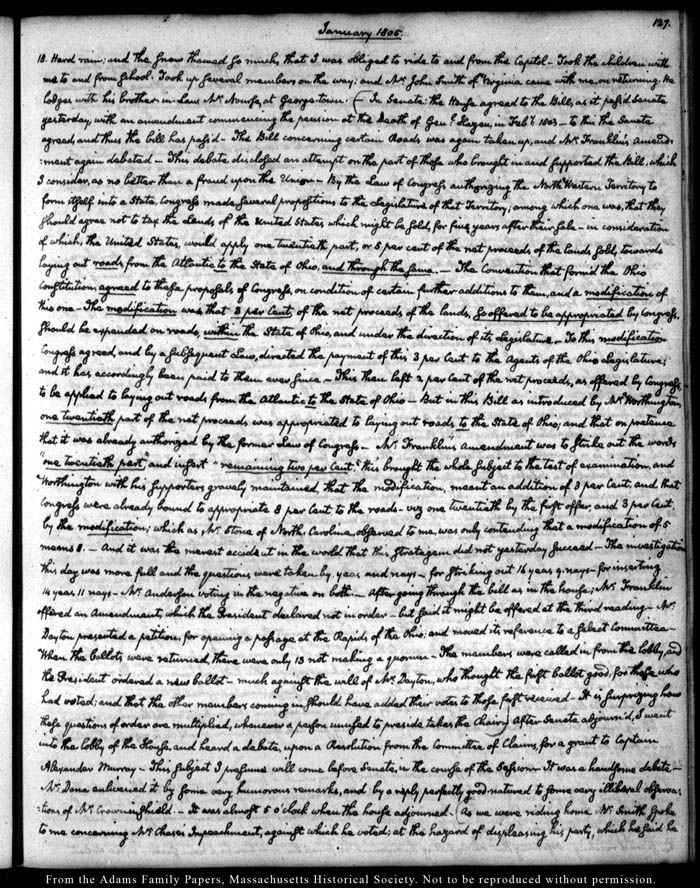 127.
January 1805.
18. Hard rain; and the snow thawed so much, that I was obliged to ride to and from the Capitol - Took the children with
me to and from school. Took up several members on the way: and Mr. John Smith of Virginia came with me, on returning. He
lodges with his brother in Law Mr. Nourse, at Georgetown. (In Senate: the House agreed to the Bill, as it pass'd Senate
yesterday, with an amendment commencing the pension at the death of Genl. Stagen, in Feby. 1803 - to this the Senate
agreed, and thus the bill has pass'd - The Bill concerning certain Roads was again taken up, and Mr. Franklin's amend-
:ment again debated - This debate disclosed an attempt on the part of those who brought in and supported the Bill, which
I consider, as no better than a fraud upon the Union - By the Law of Congress authorizing the North Western Territory to
form itself into a State, Congress made several propositions to the Legislature of that Territory; among which one was, that they
should agree not to tax the Lands of the United States which might be sold, for five years after their sale - in consideration
of which, the United States, would apply one twentieth part, or 5 per cent of the net proceeds of the lands sold, towards
laying out roads, from the Atlantic to the State of Ohio, and through the same. - The Convention that form'd the Ohio
Constitution, agreed to these proposals of Congress, on condition of certain further additions to them, and a modification of
this one - The modification was that 3 per Cent, of the net proceeds of the lands, so offered to be appropriated by Congress,
should be expended on roads, within the State of Ohio, and under the direction of its Legislature. - To this modification
Congress agreed, and by a subsequent Law, directed the payment of this 3 per Cent to the Agents of the Ohio Legislature;
and it has accordingly been paid to them ever since - This then left 2 per Cent of the net proceeds, as offered by Congress,
to be applied to laying out roads from the Atlantic to the State of Ohio - But in this Bill as introduced by Mr. Worthington,
one twentieth part of the net proceeds was appropriated to laying out roads to the State of Ohio; and that on pretence
that it was already authorized by the former Law of Congress - Mr. Franklin's amendment was to strike out the words
"one twentieth part" and insert "remaining two per Cent" this brought the whole subject to the test of examination, and
Worthington with his supporters gravely maintained, that the modification, meant an addition of 3 per Cent, and that
Congress were already bound to appropriate 8 per Cent to the roads - viz one twentieth by the first offer; and 3 per Cent
by the modification; which as Mr. Stone of North Carolina, observed to me, was only contending that a modification of 5
means 8. - And it was the merest accident in the world that this stratagem did not yesterday succeed - The investigation
this day was more full and the questions were taken by yeas and nays - for striking out 16 yeas 9. nays - for inserting
14 yeas 11 nays - Mr. Anderson voting in the negative on both. - After going through the bill as in the house; Mr. Franklin
offered an Amendment, which the President declared not in order - but said it might be offered at the third reading - Mr.
Dayton presented a petition, for opening a passage at the Rapids of the Ohio; and moved its reference to a select Committee -
When the ballots were returned, there were only 13 not making a quorum - The members were called in from the lobby, and
the President ordered a new ballot - much against the will of Mr. Dayton, who thought the first ballot good, for those who
had voted; and that the other members coming in, should have added their votes to those first received - It is surprizing how
these questions of order are multiplied, whenever a person unused to preside takes the Chair) After Senate adjourn'd, I went
into the lobby of the House, and heard a debate, upon a Resolution from the Committee of Claims, for a grant to Captain
Alexander Murray - This subject I presume will come before Senate, in the course of the Session - It was a handsome debate -
Mr. Dana enlivened it by some very humorous remarks, and by a reply perfectly good natured to some very illiberal observa-
:tions of Mr. Crowninshield. - It was almost 5 o'clock when the house adjourned. (As we were riding home, Mr. Smith spoke
to me concerning Mr. Chase's Impeachment, against which he voted; at the hazard of displeasing his party, which he said he
From the Adams Family Papers, Massachusetts Historical Society. Not to be reproduced without permission.